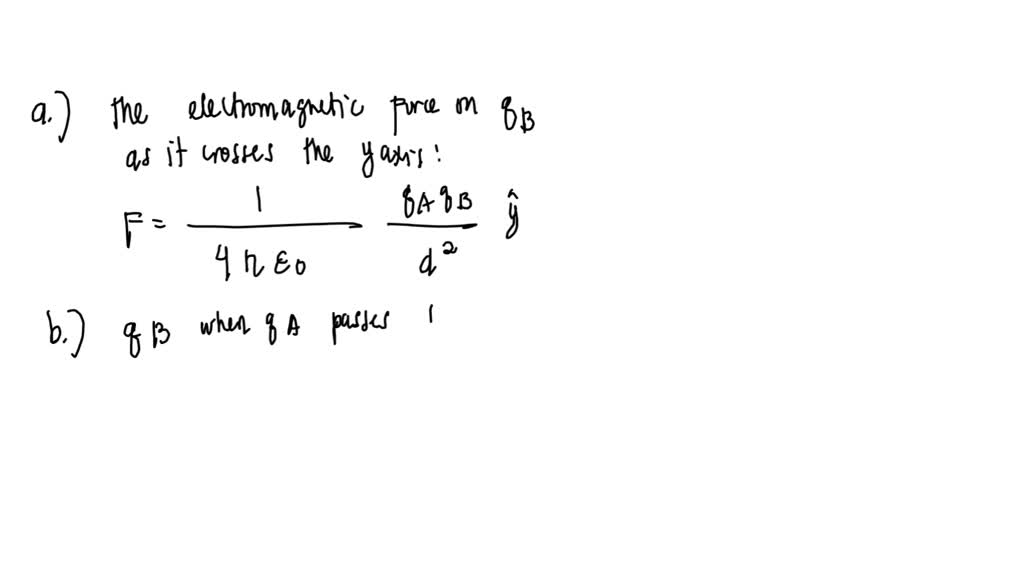 a.) the electromagnetic force on qB
as it crosses the y axis:
F = 1 / 4πε0 qAqB / d² ŷ
b.) qB when qA passes